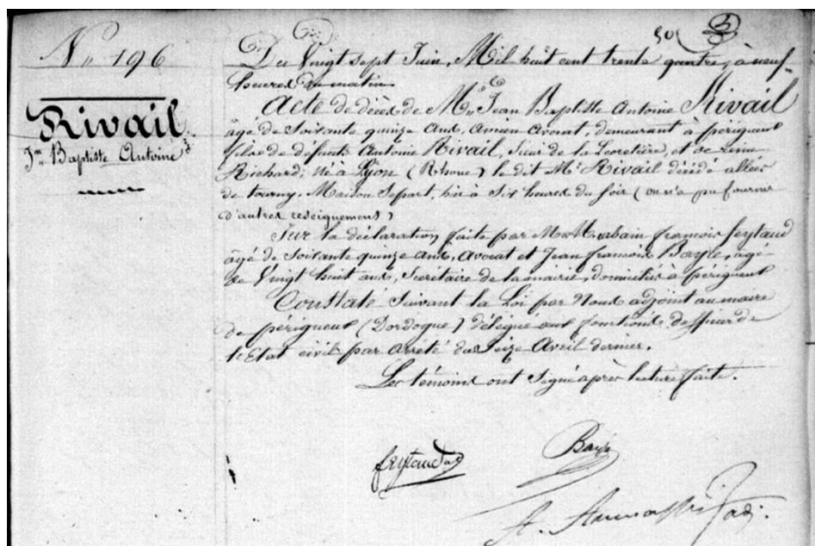 50
N° 196
Rivail
Jn Baptiste Antoine
Du Vingt sept Juin, Mil huit cent trente quatre, à neuf
heures du matin
Acte de décès de Mr Jean Baptiste Antoine Rivail
âgé de Soixante quinze ans, Ancien Avocat, demeurant à périgueux
fils de défunts Antoine Rivail, Sieur de la et de
Richard; né à Lyon (Rhone) le dit Mr Rivail décédé allées
de tourny, Maison hier à Six heures du Soir (on n'a pu fournir
d'autres renseignements)
Sur la déclaration faite par Mr Urbain françois feytaud
âgé de Soixante quinze ans, Avocat et Jean françois Bayle, âgé
de Vingt huit ans, Secrétaire de la mairie, domiciliés à périgueux
Constaté Suivant la Loi par Nous adjoint au maire
de périgueux (Dordogne) délégué aux fonctions d'officier de
l'Etat civil par Arrêté du Seize Avril dernier.
Les témoins ont Signé après lecture faite.
feytaud Bayle
adj.